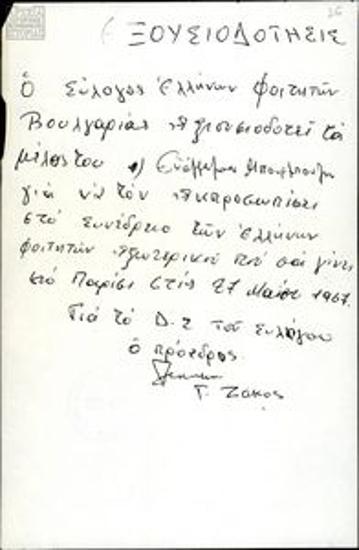 26
ΕΞΟΥΣΙΟΔΟΤΗΣΙΣ
Ὁ Σύλλογος Ἑλλήνων Φοιτητῶν
Βουλγαρίας ἐξουσιοδοτεῖ τὸ
μέλος του
γιὰ νὰ τὸν ἐκπροσωπίσει
στὸ Συνέδριο τῶν Ἑλλήνων
φοιτητῶν ἐξωτερικοῦ ποὺ θὰ γίνει
στὸ Παρίσι στὶς 27 Μαΐου 1967.
Γιὰ τὸ Δ.Σ τοῦ Συλλόγου
ὁ πρόεδρος
Γ. Ζάκος